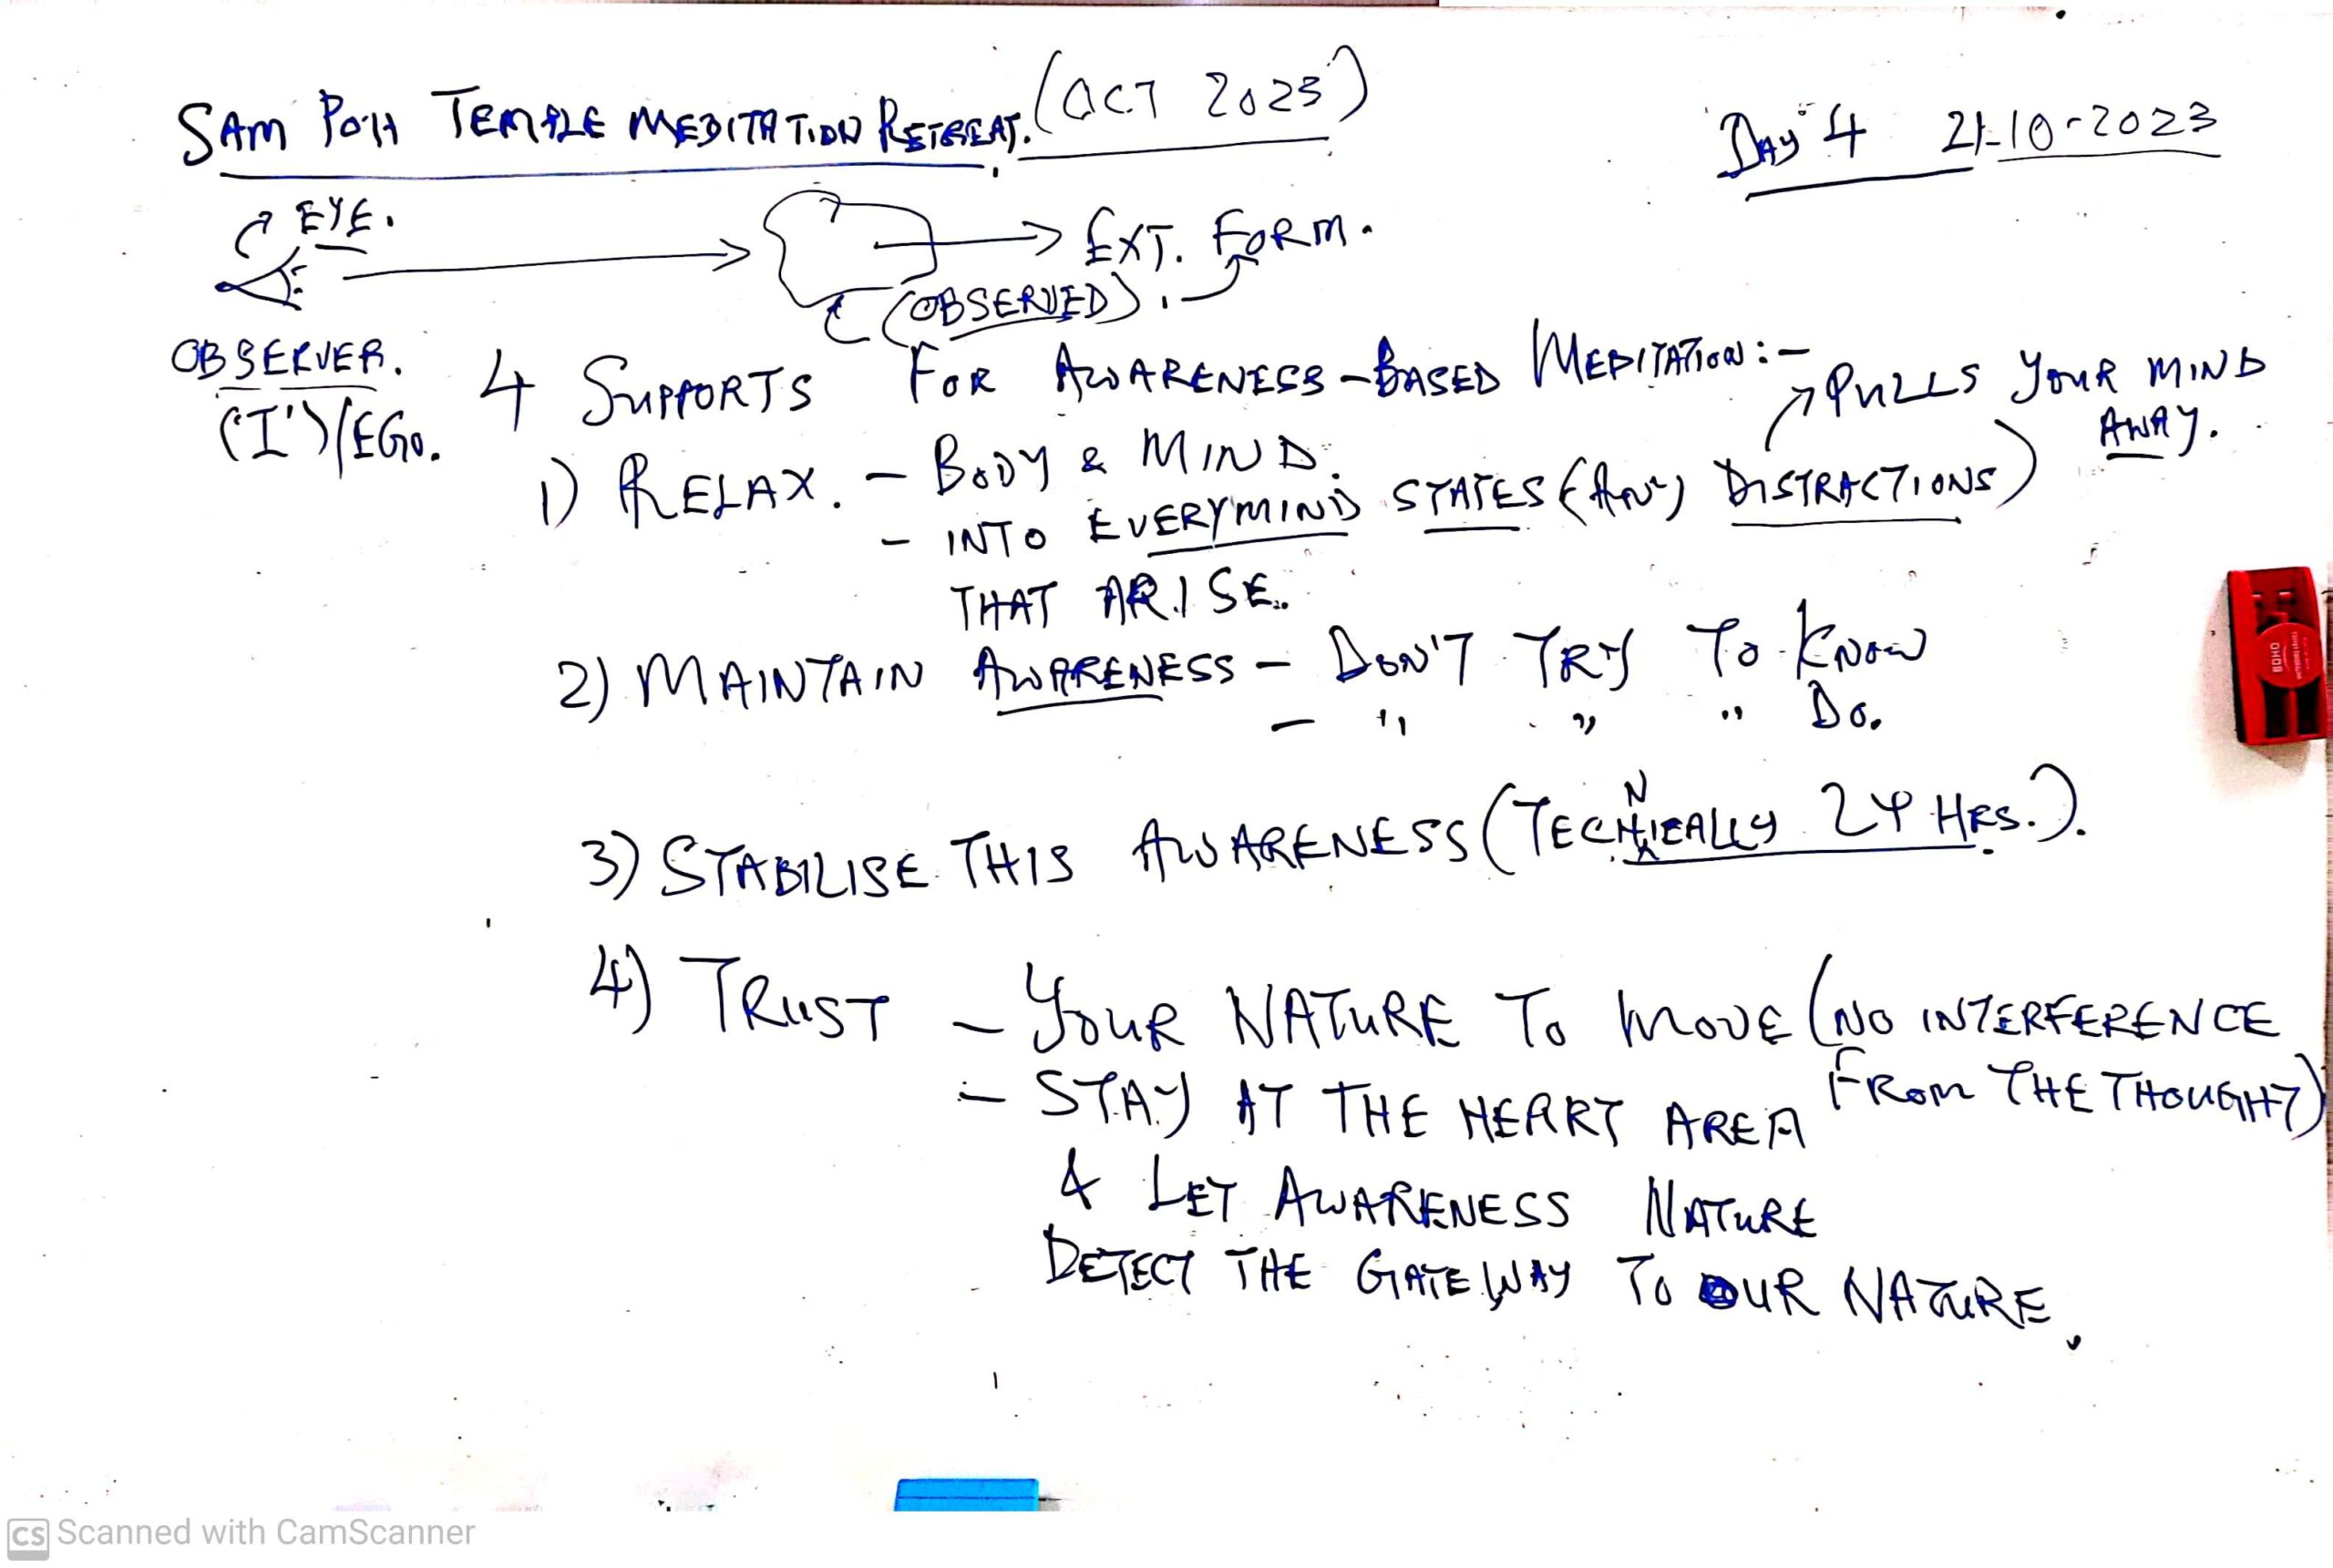 SAM POH TEMPLE MEDITATION RETREAT. (OCT 2023)
DAY 4 21-10-2023
EYE.
EXT. FORM.
(OBSERVED)
OBSERVER.
('I')/EGO.
4 SUPPORTS FOR AWARENESS-BASED MEDITATION:-
PULLS YOUR MIND
AWAY.
1) RELAX. - BODY & MIND.
- INTO EVERY MIND STATES (ANY DISTRACTIONS)
THAT ARISE.
2) MAINTAIN AWARENESS - DON'T TRY TO KNOW
- " " " DO.
3) STABILISE THIS AWARENESS (TECHNICALLY 24 HRS.).
4) TRUST - YOUR NATURE TO MOVE (NO INTERFERENCE
FROM THE THOUGHT)
- STAY AT THE HEART AREA
& LET AWARENESS NATURE
DETECT THE GATEWAY TO OUR NATURE.
BOHO
CS Scanned with CamScanner